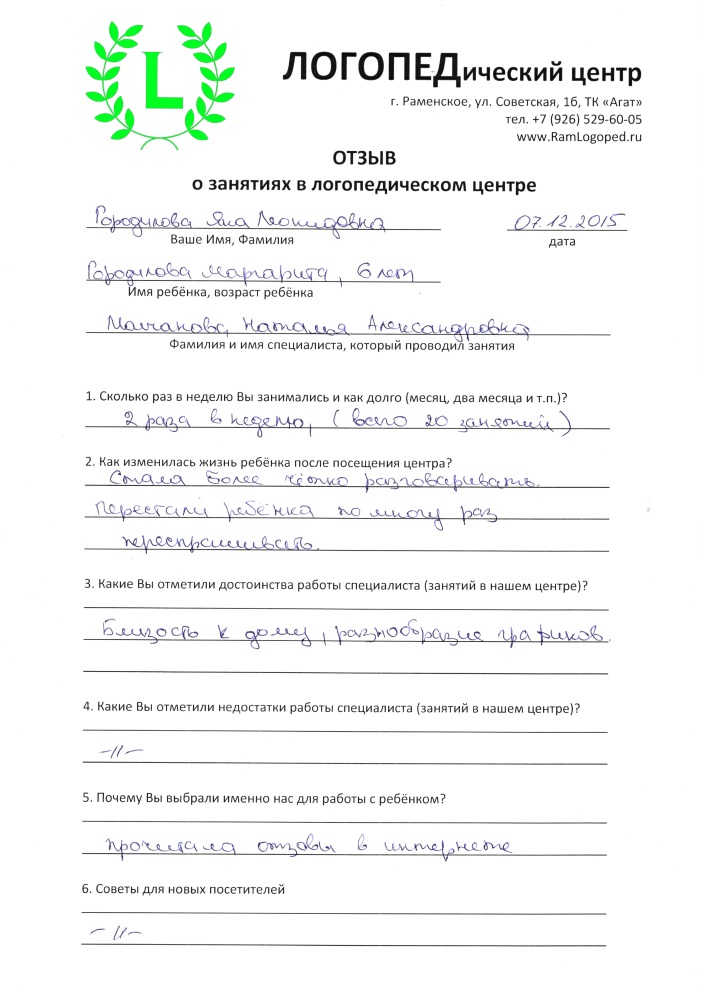 L
ЛОГОПЕДический центр
г. Раменское, ул. Советская, 1б, ТК «Агат»
тел. +7 (926) 529-60-05
www.RamLogoped.ru
ОТЗЫВ
о занятиях в логопедическом центре
Городилова Яна Леонидовна 07.12.2015
Ваше Имя, Фамилия дата
Городилова Маргарита, 6 лет
Имя ребёнка, возраст ребёнка
Молчанова, Наталья Александровна
Фамилия и имя специалиста, который проводил занятия
1. Сколько раз в неделю Вы занимались и как долго (месяц, два месяца и т.п.)?
2 раза в неделю, (всего 20 занятий)
2. Как изменилась жизнь ребёнка после посещения центра?
Стала более чётко разговаривать.
Перестали ребёнка по многу раз
переспрашивать.
3. Какие Вы отметили достоинства работы специалиста (занятий в нашем центре)?
Близость к дому, разнообразие графиков.
4. Какие Вы отметили недостатки работы специалиста (занятий в нашем центре)?
-//-
5. Почему Вы выбрали именно нас для работы с ребёнком?
прочитала отзывы в интернете
6. Советы для новых посетителей
-//-